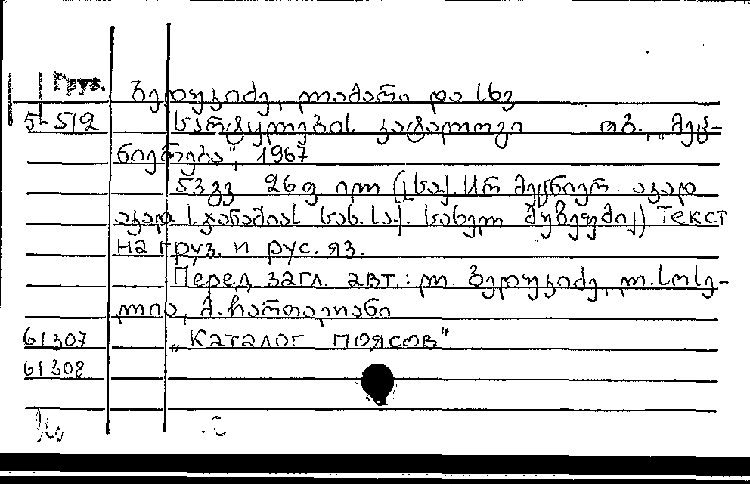 Груз. ბედუკიძე, ლამარი და სხვ
5-512 სარტყელების კატალოგი თბ., „მეც-
ნიერება", 1967
53 გვ 26 ფ. ილ (სსრ მეცნიერ. აკად
აკად ს. ჯანაშიას სახ. საქ. სახელ მუზეუმი) Текст
на груз. и рус. яз.
Перед загл. авт.: ლ. ბედუკიძე,
ლია, მ. ჩართოლანი
61307 „Каталог поясов"
61308